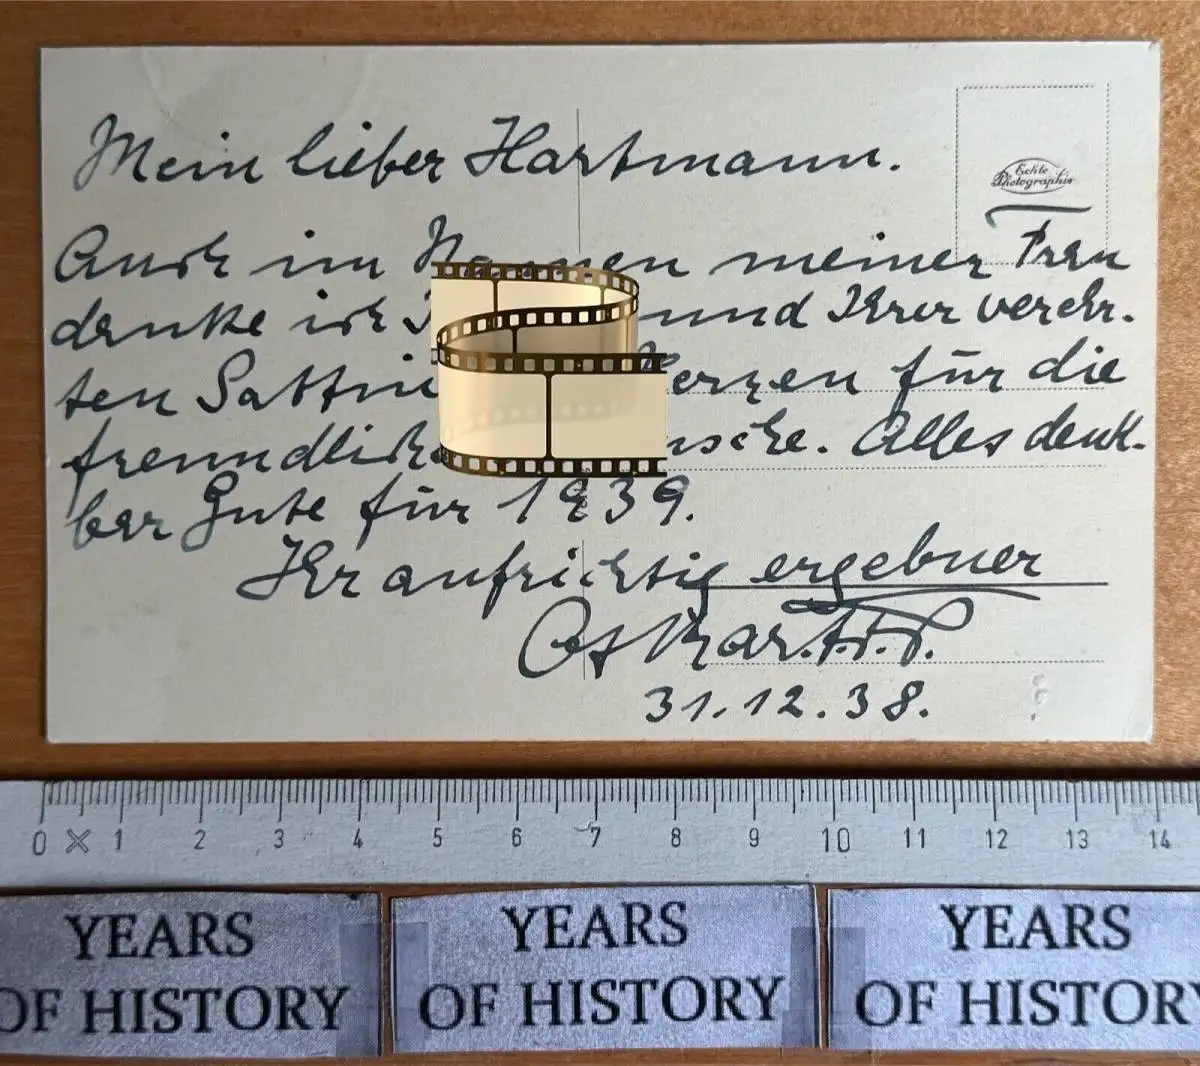 Mein lieber Hartmann.
Echte
Photographie
Auch im Namen meiner Frau
danke ich und Ihrer verehr-
ten Gattin Herzen für die
freundlichen Wünsche. Alles denk-
bar Gute für 1939.
Ihr aufrichtig ergebner
Oskar
31.12.38.
0 1 2 3 4 5 6 7 8 9 10 11 12 13 14
YEARS
OF HISTORY
YEARS
OF HISTORY
YEARS
OF HISTORY